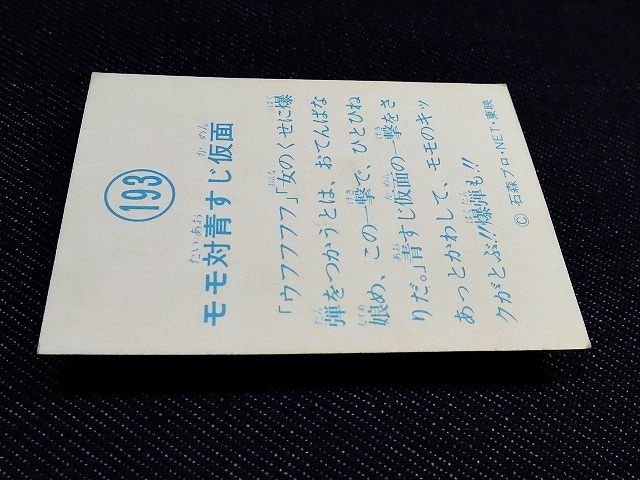 193
モモ対青すじ仮面
たいあお かめん
「ウフフフフ」「女のくせに爆
弾をつかうとは、おてんばな
娘め、この一撃で、ひとひね
りだ。」青すじ仮面の一撃をさ
あっとかわして、モモのキッ
クがとぶ!!爆弾も!!
© 石森プロ・NET・東映